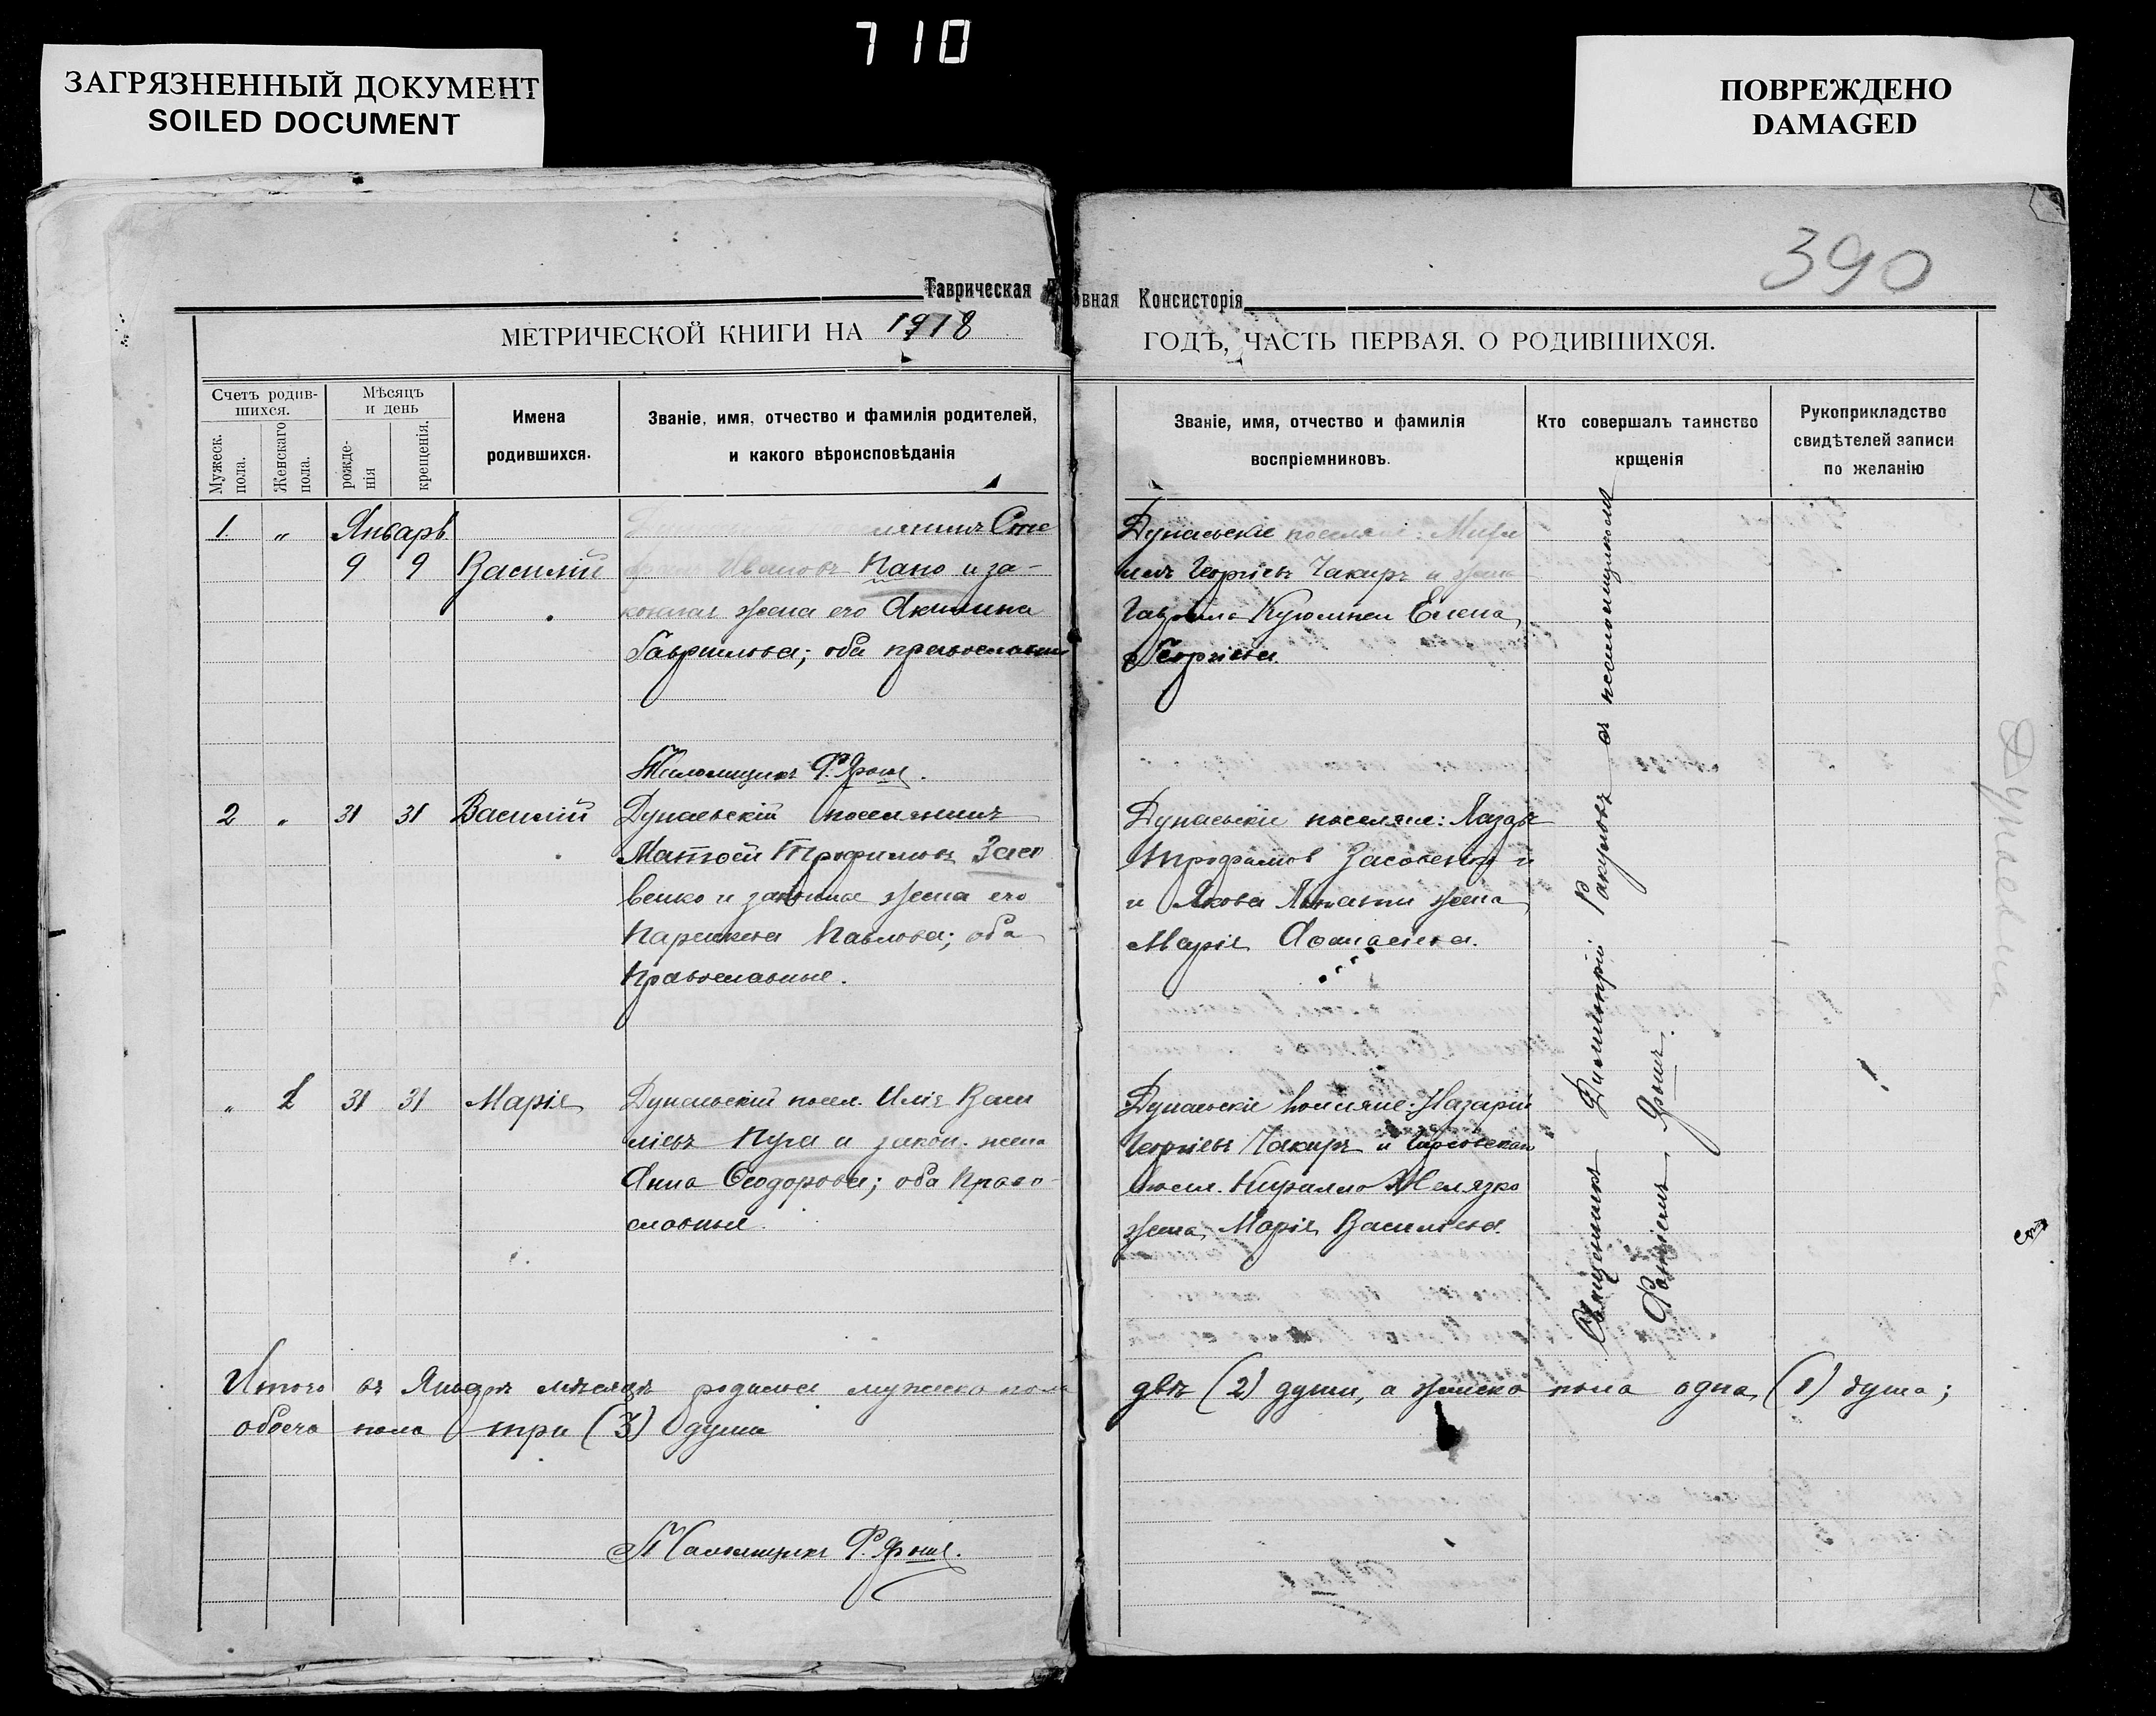 710
ЗАГРЯЗНЕННЫЙ ДОКУМЕНТ
SOILED DOCUMENT
ПОВРЕЖДЕНО
DAMAGED
390
Таврическая
овная Консисторія
МЕТРИЧЕСКОЙ КНИГИ НА 1918
ГОДЪ, ЧАСТЬ ПЕРВАЯ. О РОДИВШИХСЯ.
Счетъ родив-
шихся.
Мужеск.
пола.
Женскаго
пола.
Мѣсяцъ
и день
рожде-
нія
крещенія.
Имена
родившихся.
Званіе, имя, отчество и фамилія родителей,
и какого вѣроисповѣданія
Званіе, имя, отчество и фамилія
воспріемниковъ.
Кто совершалъ таинство
крщенія
Рукоприкладство
свидѣтелей записи
по желанію
1. " Январь
9 9 Василій
Сте
Ивановъ Папо и за-
конная жена его Акилина
Гаврилова; оба православны
Псаломщикъ Ф. Ярош.
Дунаевскіе поселяне:
Георгіевъ Чакиръ и жена
Гаврила Елена
Георгіева.
2 " 31 31 Василій
Дунаевскій поселянинъ
Матѳей Трофимовъ Засо
венко и законная жена его
Параскева Павлова; оба
Православные.
Дунаевскіе поселяне: Лазарь
Трофимов Засовенко и
и Якова жена
Марія Аѳанасіева.
" 1 31 31 Марія
Дунаевскій посел. Илія Васи
ліевъ Пуга и закон. жена
Анна Ѳеодорова; оба Право-
славные.
Дунаевскіе поселяне: Назарій
Георгіевъ Чакиръ и
посел. Кирилло Желязко
жена Марія Василіева.
Священникъ Димитрій Ракуровъ съ псаломщикомъ
Фотіемъ Ярошъ.
Итого въ Январѣ мѣсяцѣ родилось мужеска пола
двѣ (2) души, а женска пола одна (1) душа;
обоего пола три (3) души
Псаломщикъ Ф. Ярош.
Дунаевка